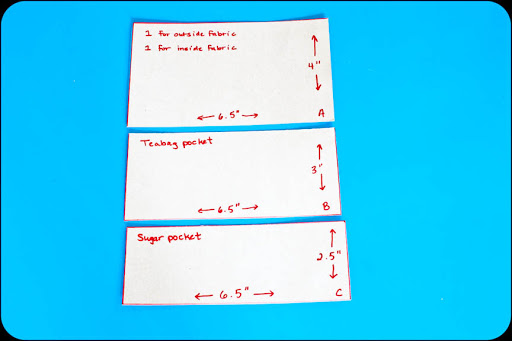 1 for outside fabric
1 for inside fabric
4"
← 6.5" →
A
Teabag pocket
3"
← 6.5" →
B
Sugar pocket
2.5"
← 6.5" →
C